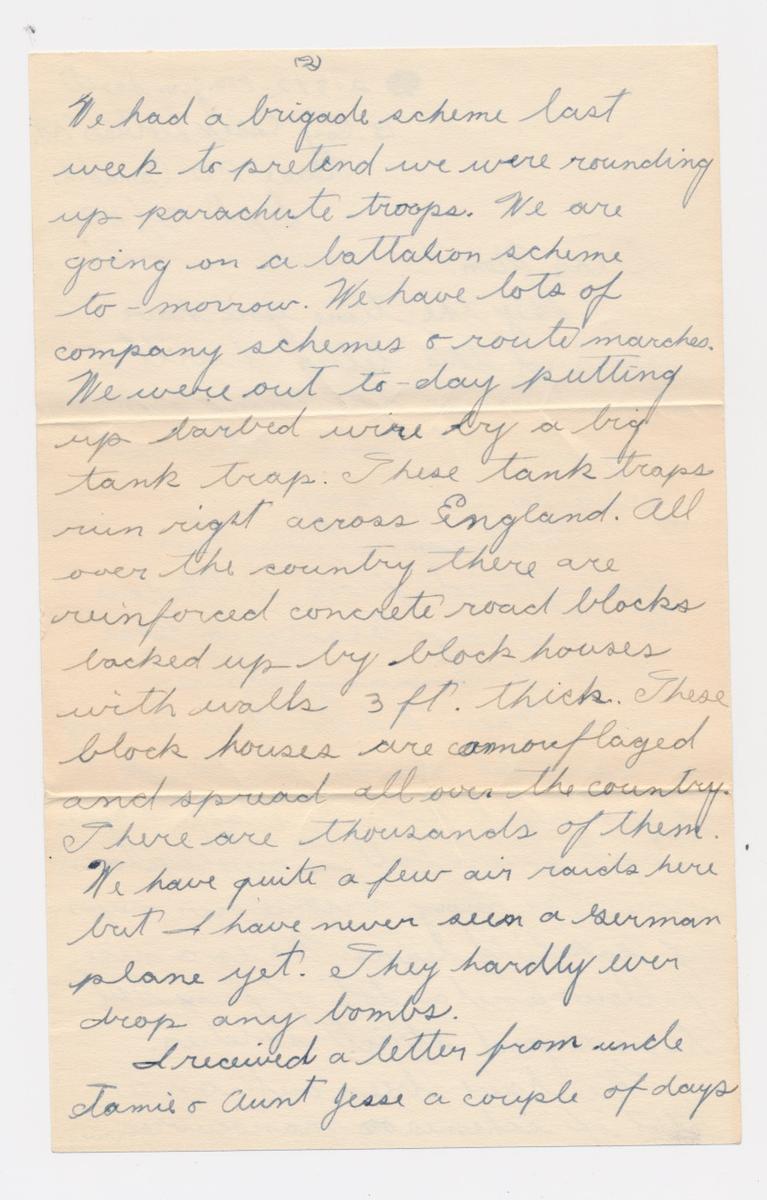 (2)
We had a brigade scheme last
week to pretend we were rounding
up parachute troops. We are
going on a battalion scheme
to-morrow. We have lots of
company schemes & route marches.
We were out to-day putting
up barbed wire by a big
tank trap. These tank traps
run right across England. All
over the country there are
reinforced concrete road blocks
backed up by block houses
with walls 3 ft. thick. These
block houses are camouflaged
and spread all over the country.
There are thousands of them.
We have quite a few air raids here
but I have never seen a German
plane yet. They hardly ever
drop any bombs.
I received a letter from uncle
Jamie & Aunt Jesse a couple of days